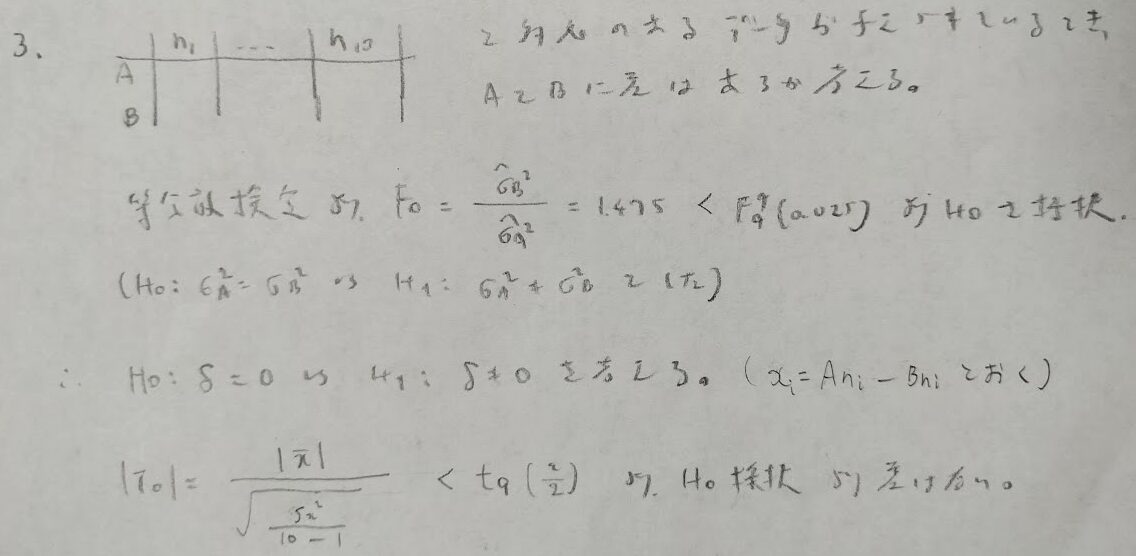 3.
n₁ … n₁₀
A
B
と対応のあるデータが与えられているとき,
AとBに差はあるか考える。
等分散検定より. F₀ = σ̂_B² / σ̂_A² = 1.475 < F₉⁹(0.025) より H₀を採択.
(H₀: σ_A² = σ_B² vs H₁: σ_A² ≠ σ_B² とした)
∴ H₀: δ = 0 vs H₁: δ ≠ 0 を考える。(xᵢ = Anᵢ − Bnᵢ とおく)
|T₀| = |x̄| / √(Sx² / (10 − 1)) < t₉(α/2) より. H₀採択 より差はない。